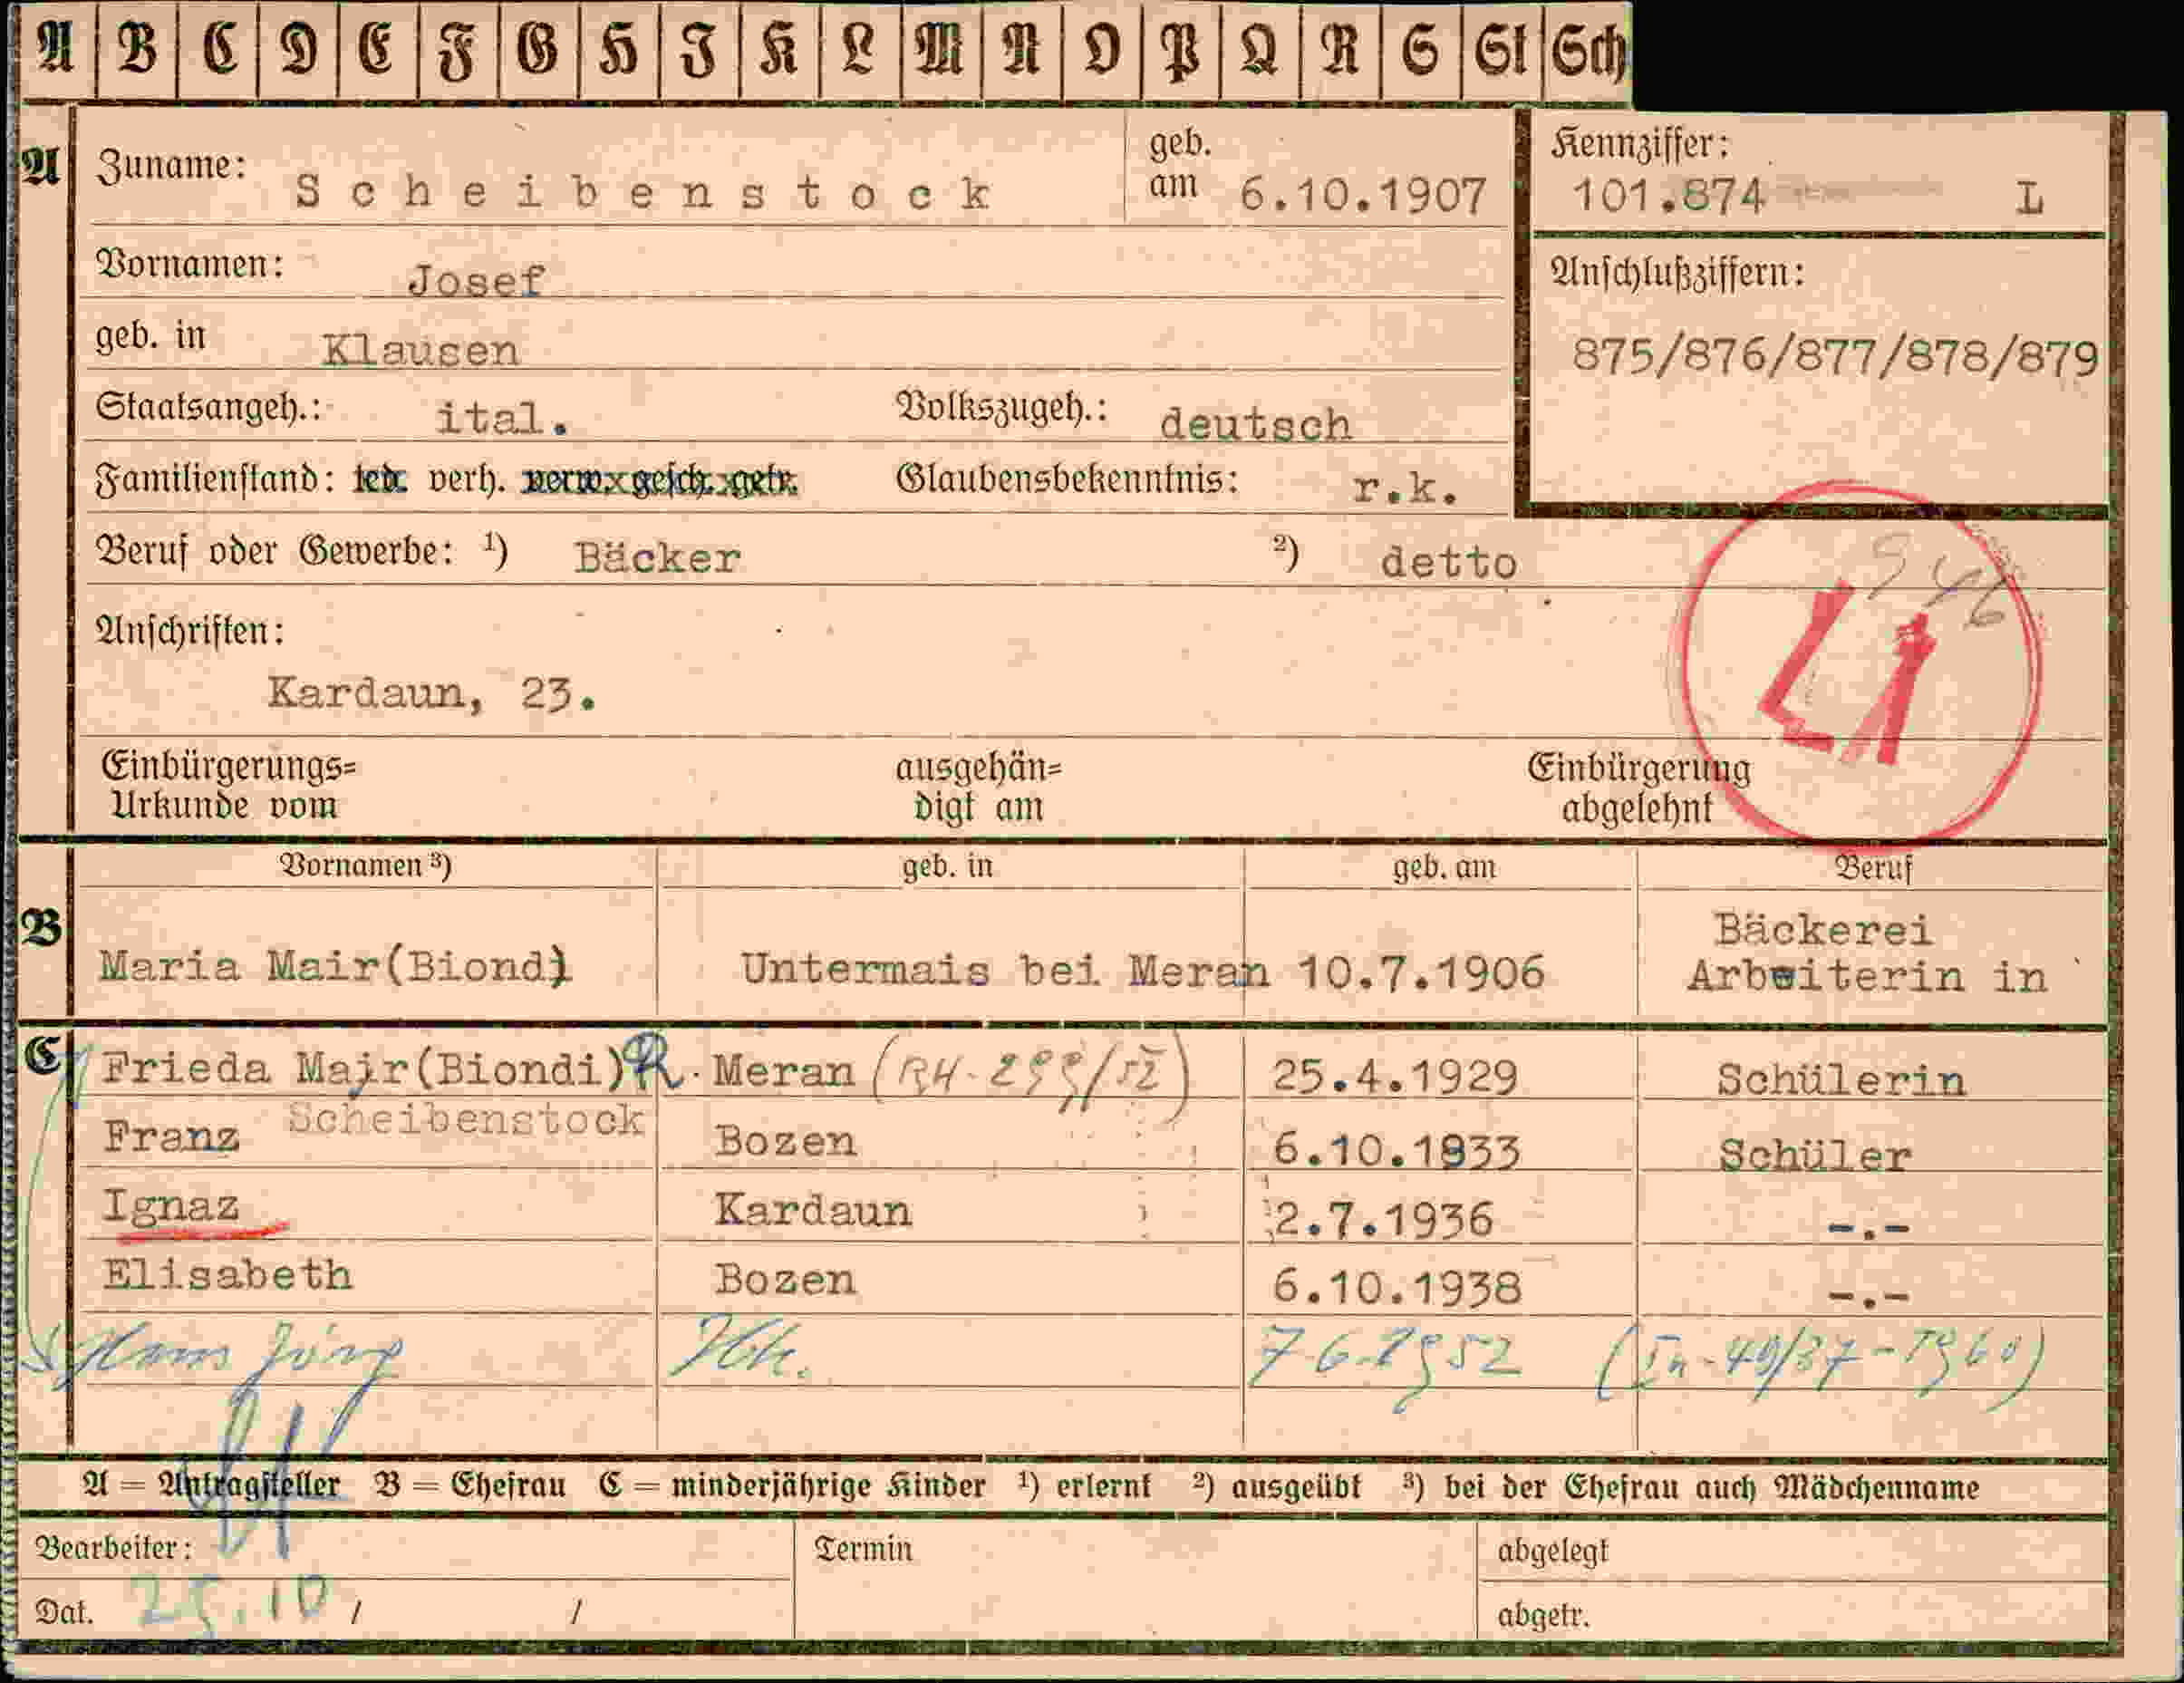 A B C D E F G H I K L M N O P Q R S St Sch
A Zuname: Scheibenstock geb. am 6.10.1907
Kennziffer: 101.874 L
Vornamen: Josef
Anschlußziffern:
geb. in Klausen
875/876/877/878/879
Staatsangeh.: ital. Volkszugeh.: deutsch
Familienstand: led. verh. verw. gesch. getr. Glaubensbekenntnis: r.k.
Beruf oder Gewerbe: ¹) Bäcker ²) detto
Anschriften:
Kardaun, 23.
Einbürgerungs= ausgehän= Einbürgerung
Urkunde vom digt am abgelehnt
Vornamen ³) geb. in geb. am Beruf
B Bäckerei
Maria Mair(Biondi) Untermais bei Meran 10.7.1906 Arbeiterin in
C Frieda Mair(Biondi) R. Meran 25.4.1929 Schülerin
Franz Scheibenstock Bozen 6.10.1933 Schüler
Ignaz Kardaun 2.7.1936 -.-
Elisabeth Bozen 6.10.1938 -.-
Hans Jörg 7.6.1952
A = Antragsteller B = Ehefrau C = minderjährige Kinder ¹) erlernt ²) ausgeübt ³) bei der Ehefrau auch Mädchenname
Bearbeiter: Termin abgelegt
Dat. 25.10 / / abgetr.